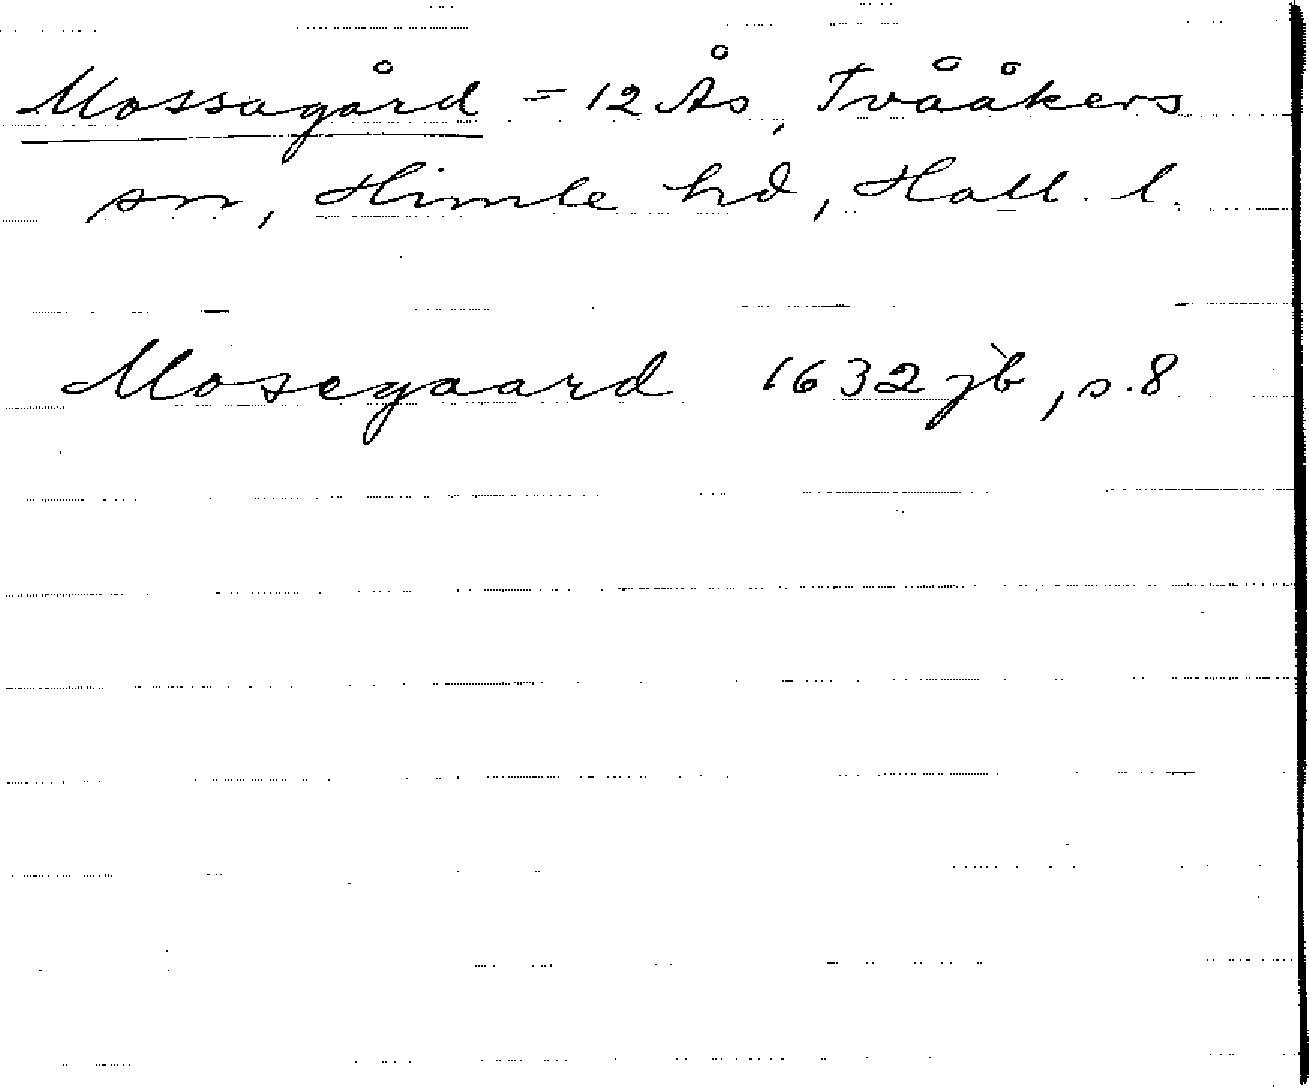 Mossagård = 12 Ås, Tvååkers
sn, Himle hd, Hall. l.
Mosegaard 1632 jb, s. 8